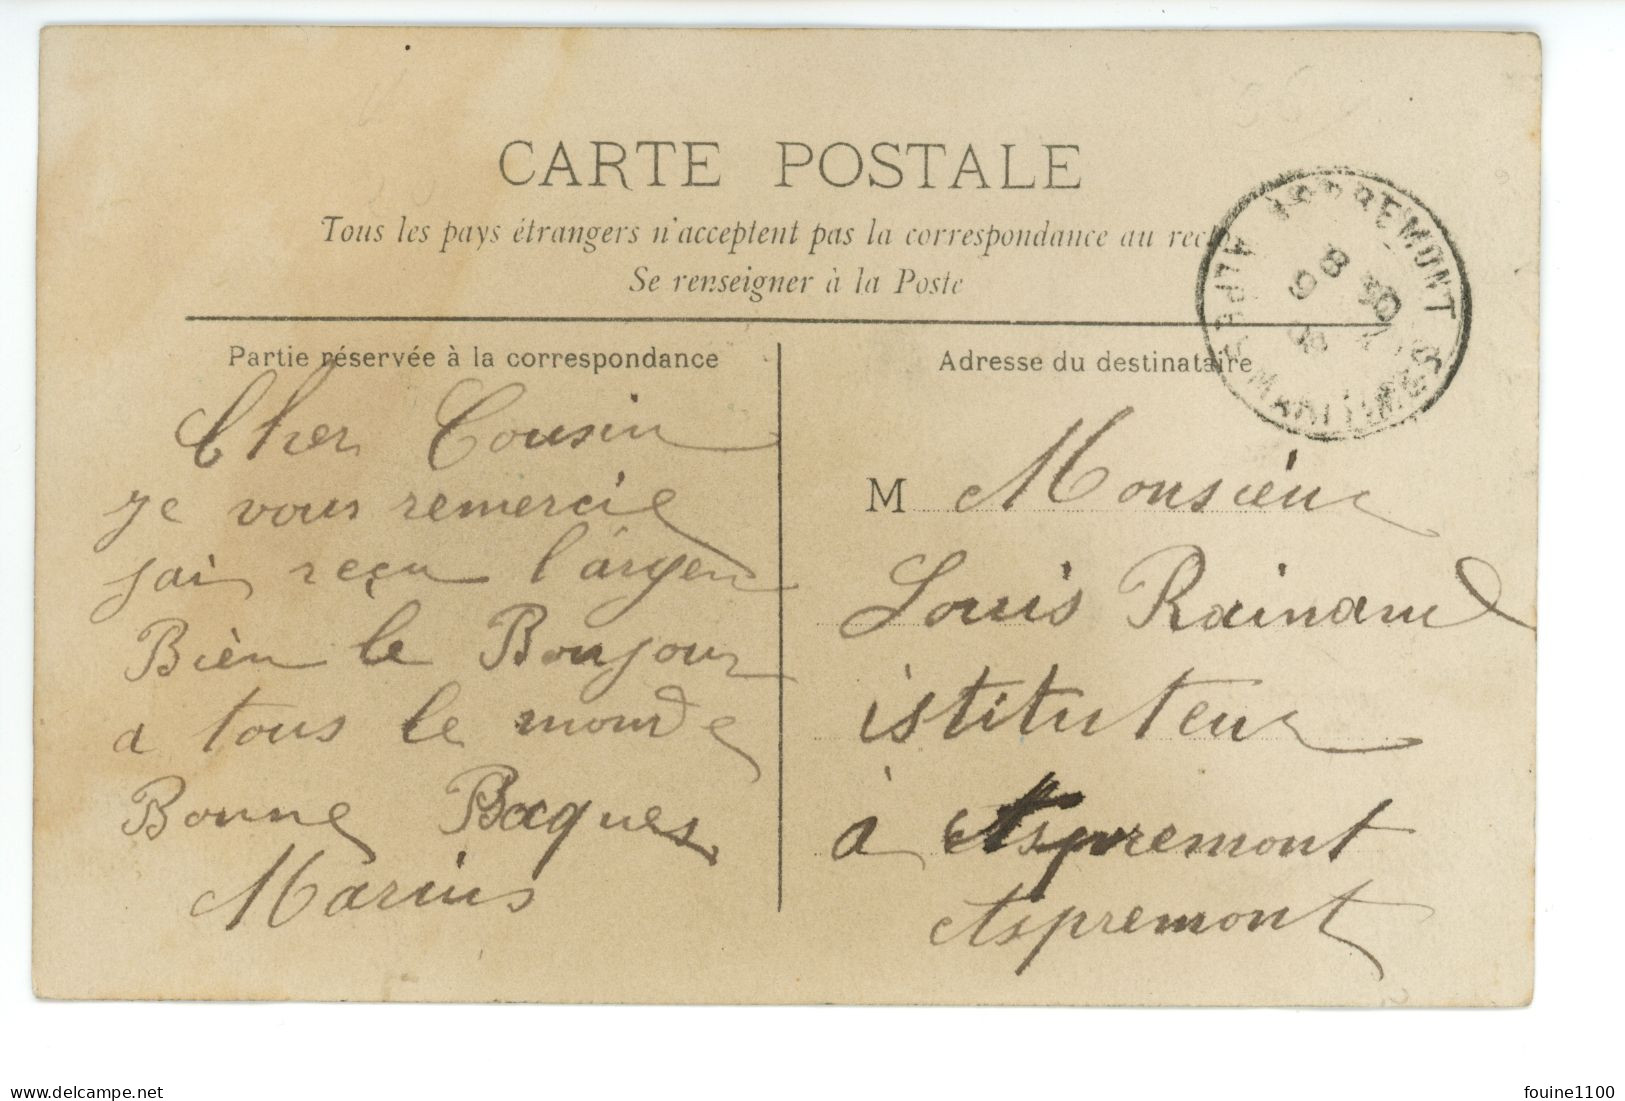 CARTE POSTALE
Tous les pays étrangers n'acceptent pas la correspondance au recto
Se renseigner à la Poste
ASPREMONT
ALPES MARITIMES
8 30
9
Partie réservée à la correspondance
Adresse du destinataire
Cher Cousin
je vous remercie
jai reçu l'argen
Bièn le Bonjour
a tous le monde
Bonne Paques
Marius
M Monsieur
Louis Rainaud
istituteur
à Aspremont
Aspremont
www.delcampe.net
fouine1100